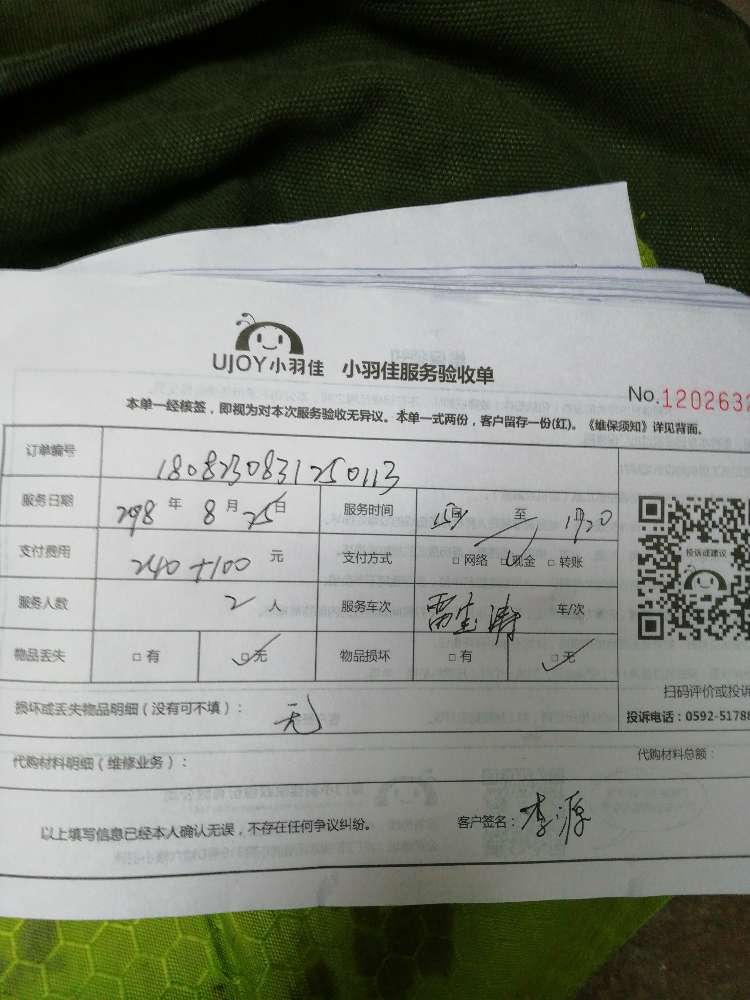 UJOY小羽佳 小羽佳服务验收单
No.1202632
本单一经核签，即视为对本次服务验收无异议。本单一式两份，客户留存一份(红)。《维保须知》详见背面。
订单编号 1808230831250113
服务日期 年 8 月 25 日 服务时间 至
支付费用 240+100 元 支付方式 □ 网络 □ 现金 □ 转账
投诉或建议
服务人数 2 人 服务车次 车/次
物品丢失 □ 有 □ 无 物品损坏 □ 有 □ 无
扫码评价或投诉
损坏或丢失物品明细（没有可不填）： 无
投诉电话：0592-51788
代购材料明细（维修业务）： 代购材料总额：
以上填写信息已经本人确认无误，不存在任何争议纠纷。 客户签名：李源